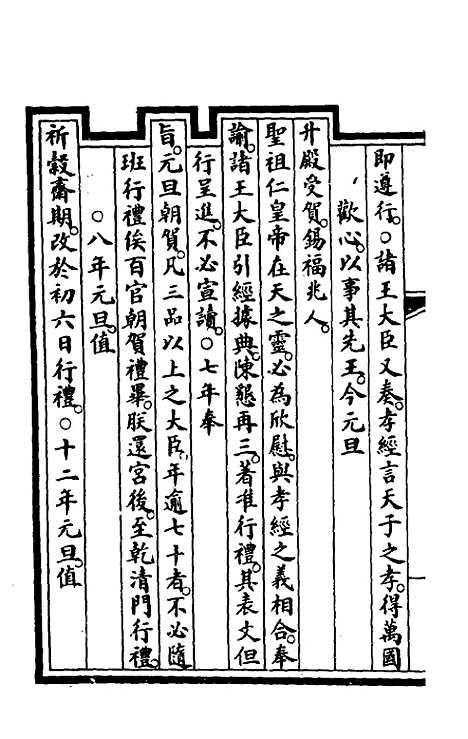 即遵行。○諸王大臣又奏。孝經言天子之孝。得萬國
歡心。以事其先王。今元旦
升殿受賀。錫福兆人。
聖祖仁皇帝在天之靈。必為欣慰。與孝經之義相合。奉
諭。諸王大臣引經據典。陳懇再三。著准行禮。其表文但
行呈進。不必宣讀。○七年奉
旨。元旦朝賀。凡三品以上之大臣。年逾七十者。不必隨
班行禮。俟百官朝賀禮畢。朕還宮後。至乾清門行禮。
○八年元旦。值
祈穀齋期。改於初六日行禮。○十二年元旦。值